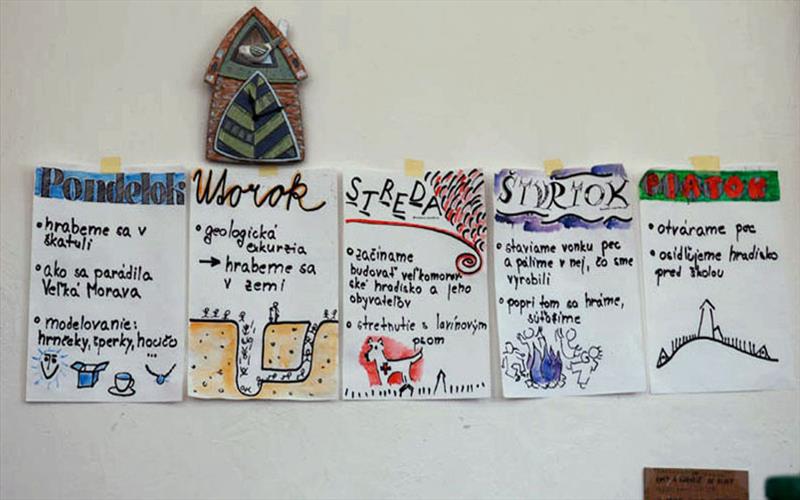 Pondelok
• hrabeme sa v
škatuli
• ako sa parádila
Veľká Morava
• modelovanie:
hrnčeky, šperky, hocičo
...
Utorok
• geologická
exkurzia
→ hrabeme sa
v zemi
STREDA
• začíname
budovať veľkomorav-
ské hradisko a jeho
obyvateľov
• stretnutie s lavínovým
psom
ŠTVRTOK
• staviame vonku pec
a pálime v nej, čo sme
vyrobili
• popri tom sa hráme,
súťažíme
PIATOK
• otvárame pec
• osídľujeme hradisko
pred školou